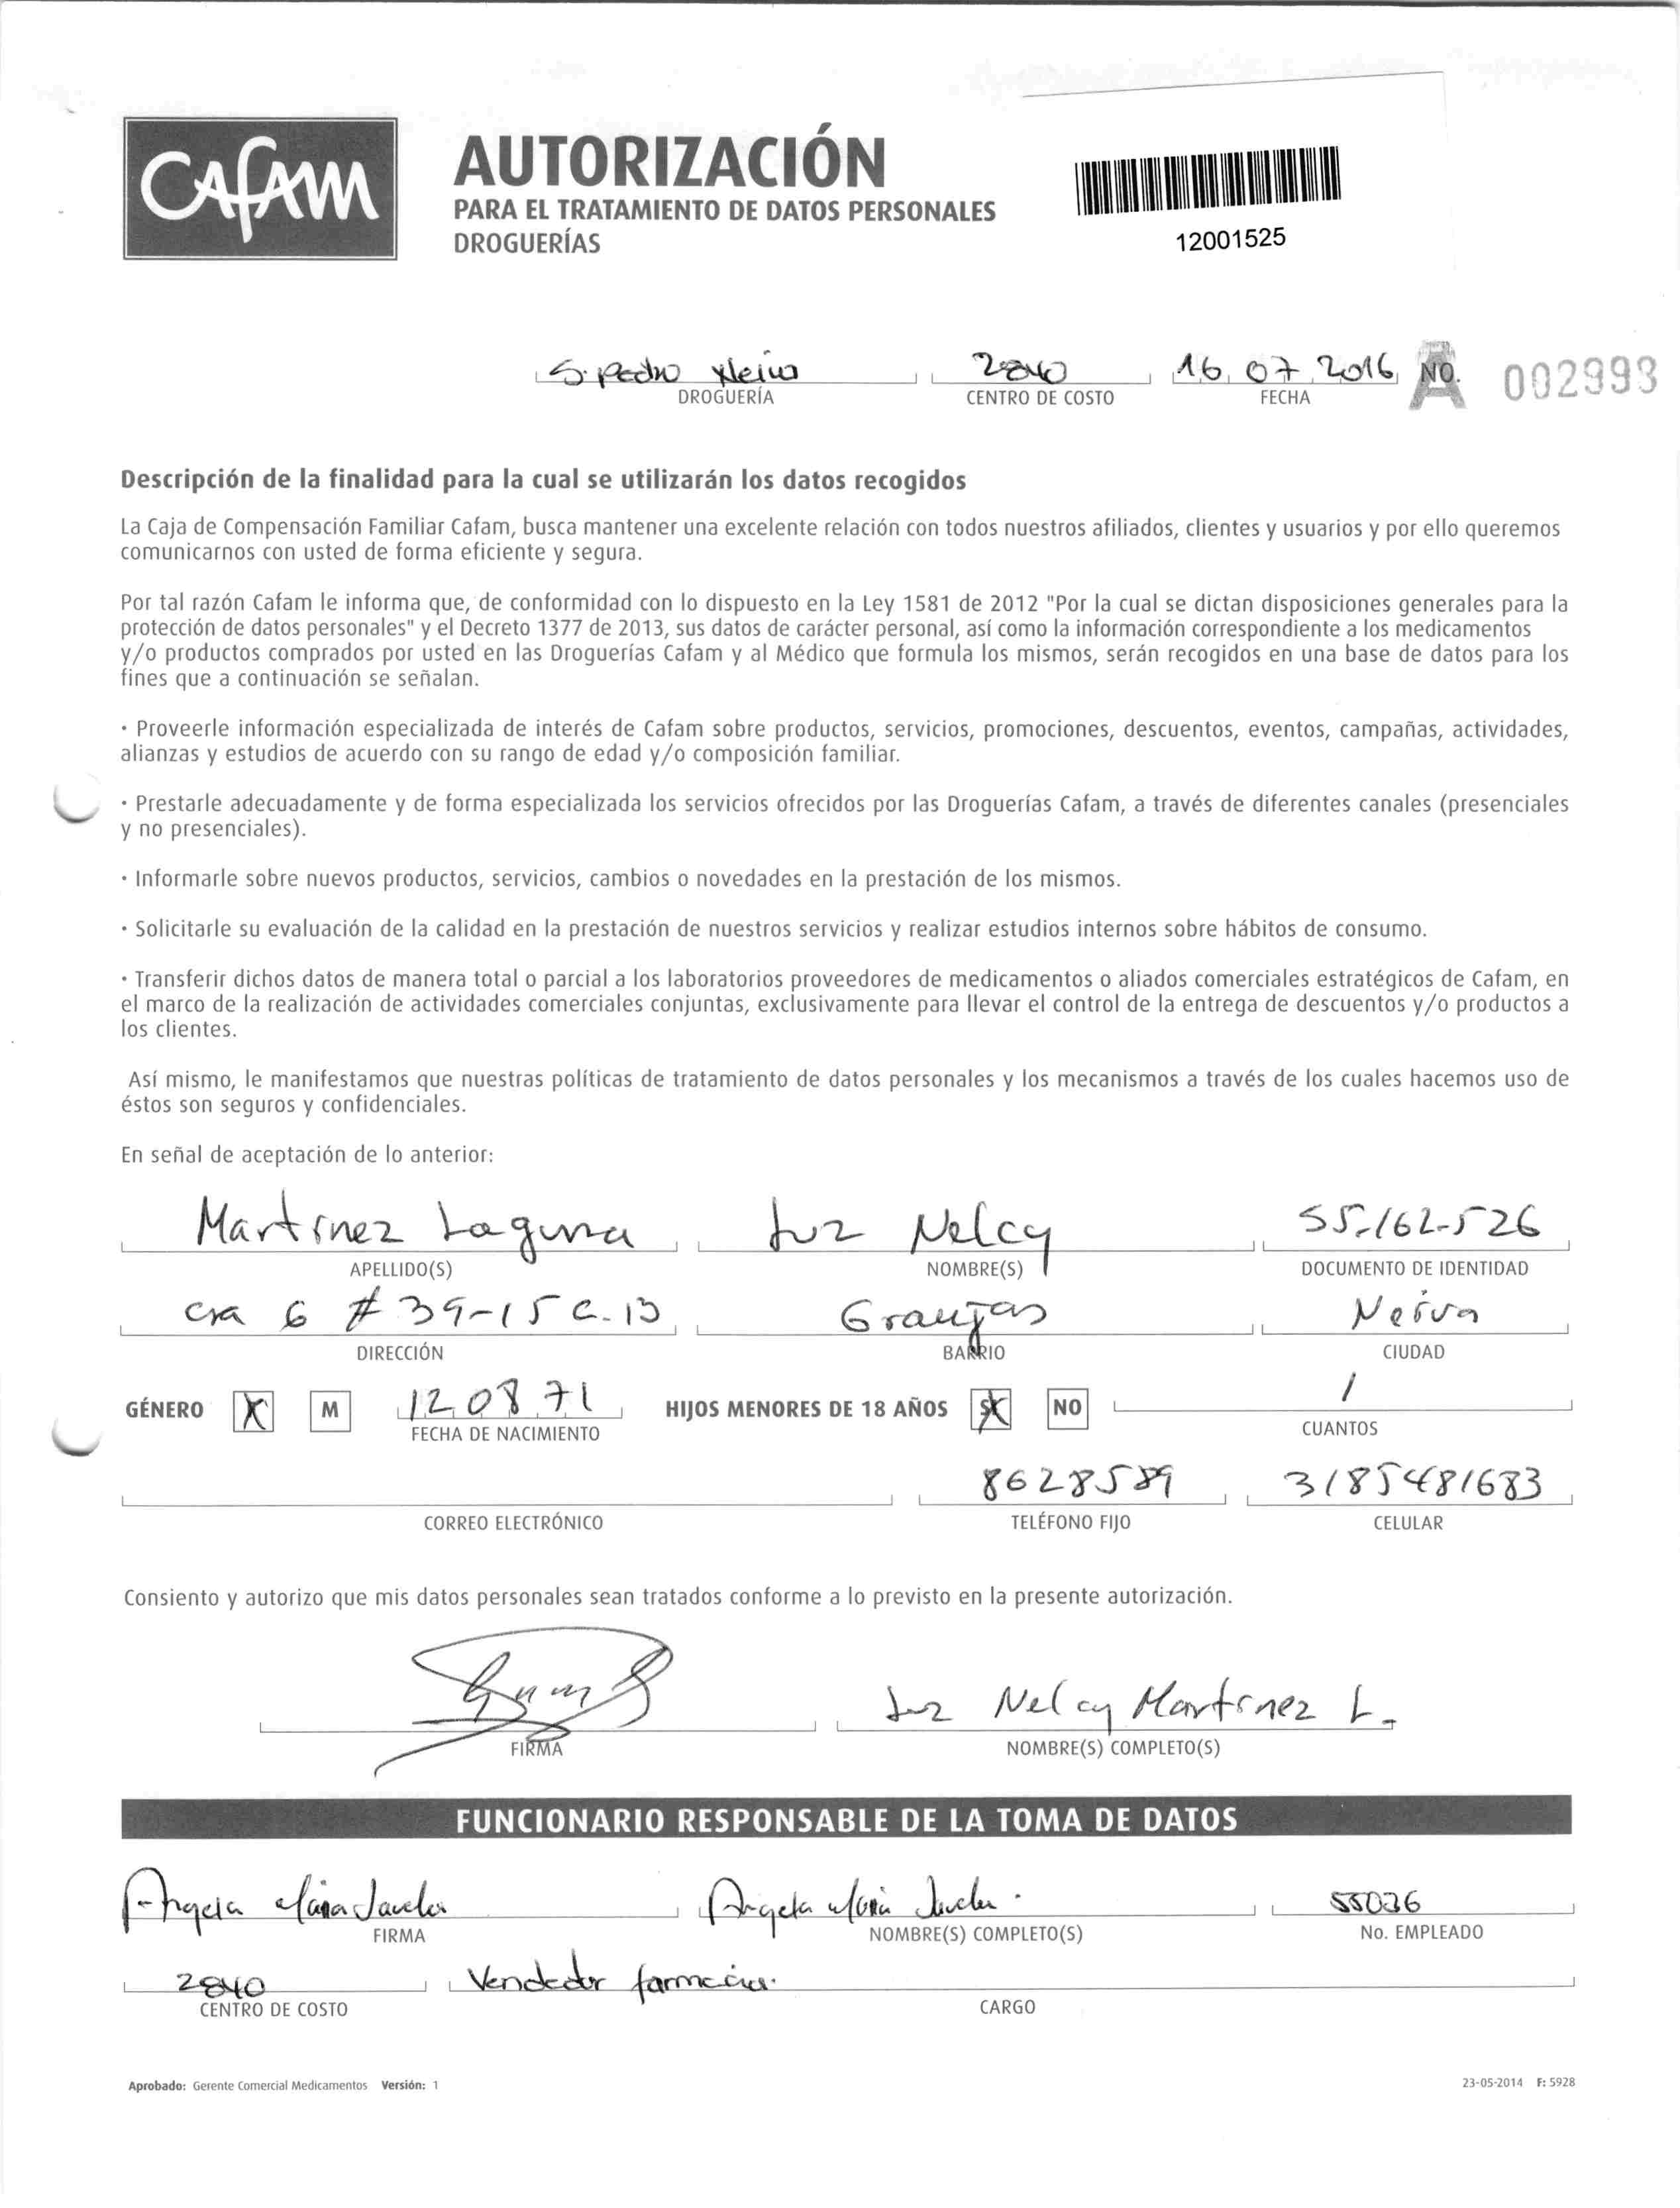 CAFAM
AUTORIZACIÓN
PARA EL TRATAMIENTO DE DATOS PERSONALES
DROGUERÍAS
12001525
S. Pedro Neiva 2840 16 07 2016 A NO. 002993
DROGUERÍA CENTRO DE COSTO FECHA
Descripción de la finalidad para la cual se utilizarán los datos recogidos
La Caja de Compensación Familiar Cafam, busca mantener una excelente relación con todos nuestros afiliados, clientes y usuarios y por ello queremos
comunicarnos con usted de forma eficiente y segura.
Por tal razón Cafam le informa que, de conformidad con lo dispuesto en la Ley 1581 de 2012 "Por la cual se dictan disposiciones generales para la
protección de datos personales" y el Decreto 1377 de 2013, sus datos de carácter personal, así como la información correspondiente a los medicamentos
y/o productos comprados por usted en las Droguerías Cafam y al Médico que formula los mismos, serán recogidos en una base de datos para los
fines que a continuación se señalan.
· Proveerle información especializada de interés de Cafam sobre productos, servicios, promociones, descuentos, eventos, campañas, actividades,
alianzas y estudios de acuerdo con su rango de edad y/o composición familiar.
· Prestarle adecuadamente y de forma especializada los servicios ofrecidos por las Droguerías Cafam, a través de diferentes canales (presenciales
y no presenciales).
· Informarle sobre nuevos productos, servicios, cambios o novedades en la prestación de los mismos.
· Solicitarle su evaluación de la calidad en la prestación de nuestros servicios y realizar estudios internos sobre hábitos de consumo.
· Transferir dichos datos de manera total o parcial a los laboratorios proveedores de medicamentos o aliados comerciales estratégicos de Cafam, en
el marco de la realización de actividades comerciales conjuntas, exclusivamente para llevar el control de la entrega de descuentos y/o productos a
los clientes.
Así mismo, le manifestamos que nuestras políticas de tratamiento de datos personales y los mecanismos a través de los cuales hacemos uso de
éstos son seguros y confidenciales.
En señal de aceptación de lo anterior:
Martinez Laguna Luz Nelcy 55.162.526
APELLIDO(S) NOMBRE(S) DOCUMENTO DE IDENTIDAD
cra 6 # 39-15 C.13 Granjas Neiva
DIRECCIÓN BARRIO CIUDAD
GÉNERO X M 12 08 71 HIJOS MENORES DE 18 AÑOS SI X NO 1
FECHA DE NACIMIENTO CUANTOS
8628589 3185481683
CORREO ELECTRÓNICO TELÉFONO FIJO CELULAR
Consiento y autorizo que mis datos personales sean tratados conforme a lo previsto en la presente autorización.
Luz Nelcy Martinez L.
FIRMA NOMBRE(S) COMPLETO(S)
FUNCIONARIO RESPONSABLE DE LA TOMA DE DATOS
Angela Maria Angela Maria 55036
FIRMA NOMBRE(S) COMPLETO(S) No. EMPLEADO
2840 Vendedor farmacia.
CENTRO DE COSTO CARGO
Aprobado: Gerente Comercial Medicamentos Versión: 1 23-05-2014 F: 5928